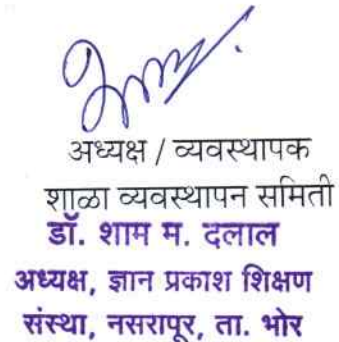 अध्यक्ष / व्यवस्थापक
शाळा व्यवस्थापन समिती
डॉ. शाम म. दलाल
अध्यक्ष, ज्ञान प्रकाश शिक्षण
संस्था, नसरापूर, ता. भोर